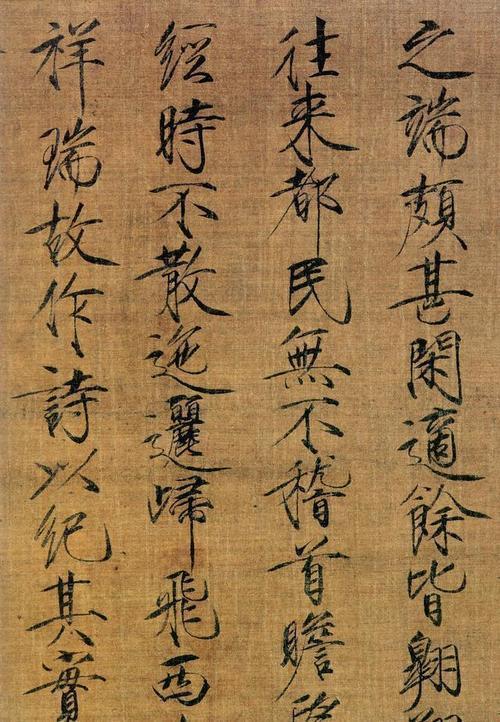 之端頗甚閑適餘皆翱
往來都民無不稽首瞻
經時不散迤邐歸飛西
祥瑞故作詩以紀其實